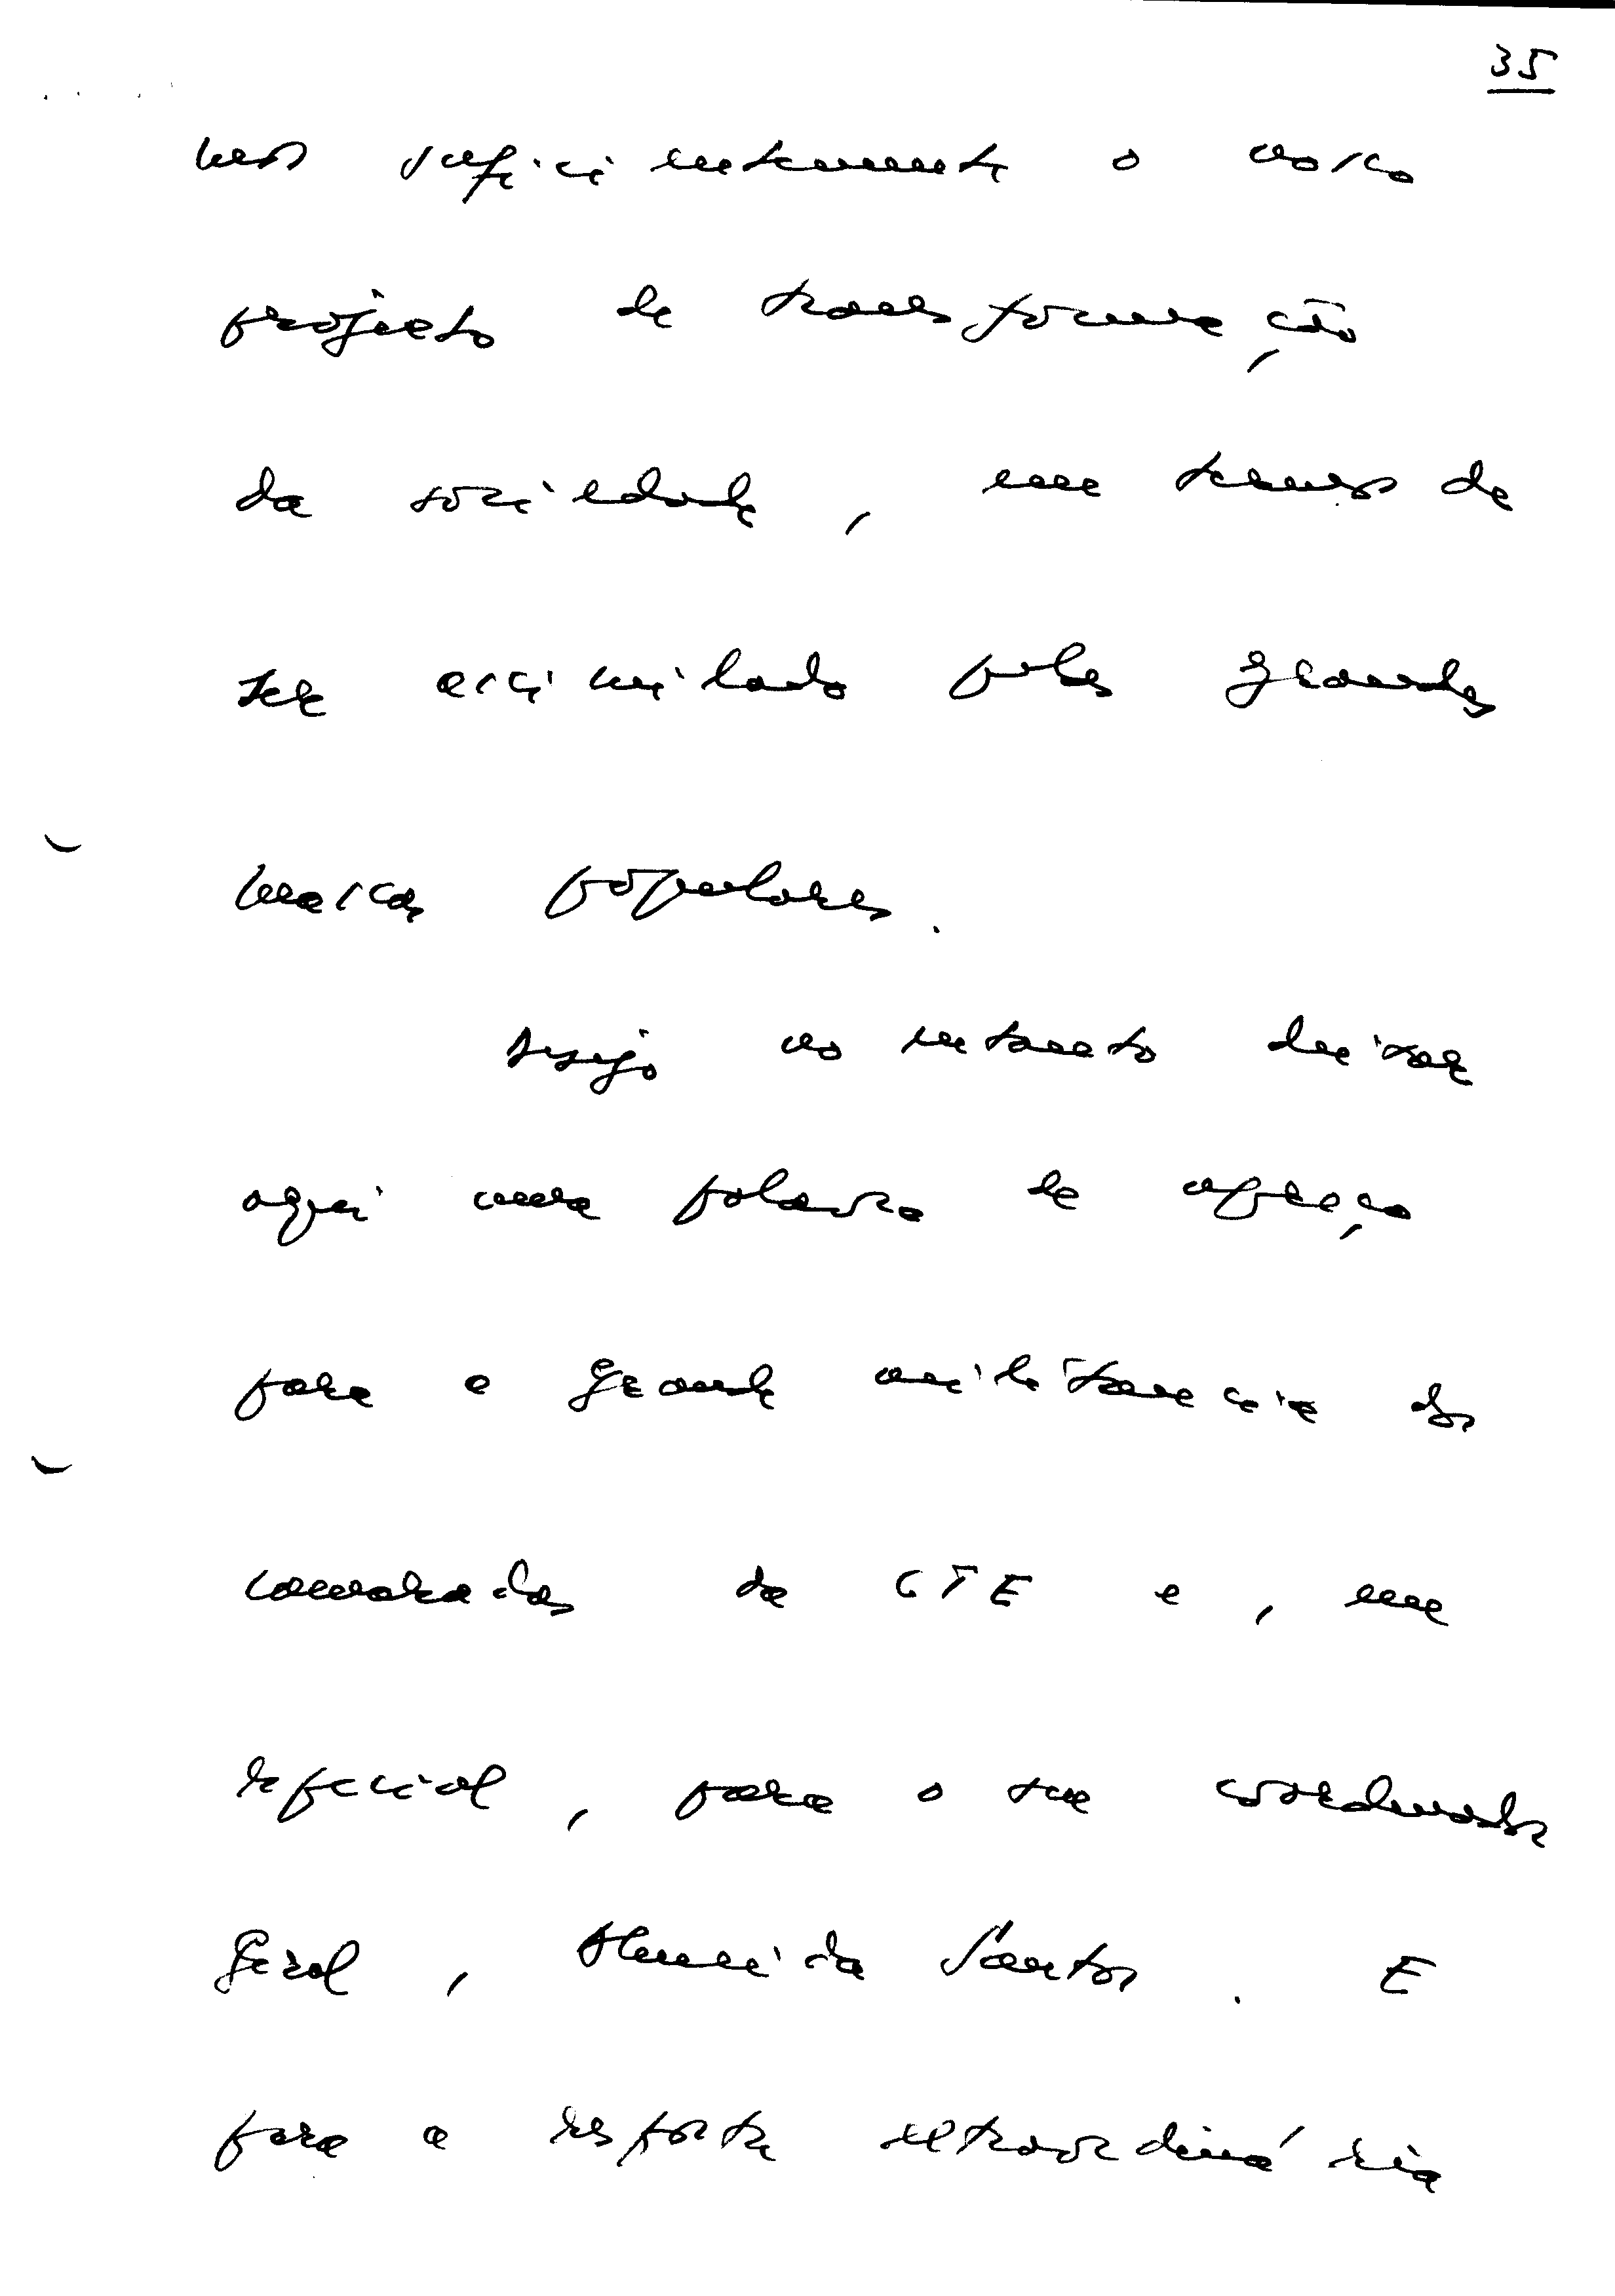 35
mos suficientemente o nosso
projecto de transformação
da sociedade, em termos de
ser assimilado pelas grandes
massas populares.
Desejo no entanto deixar
aqui uma palavra de apreço
para a grande militância dos
camaradas da CTE e, em
especial, para o seu coordenador
geral, Almeida Santos. E
para a resposta extraordinária